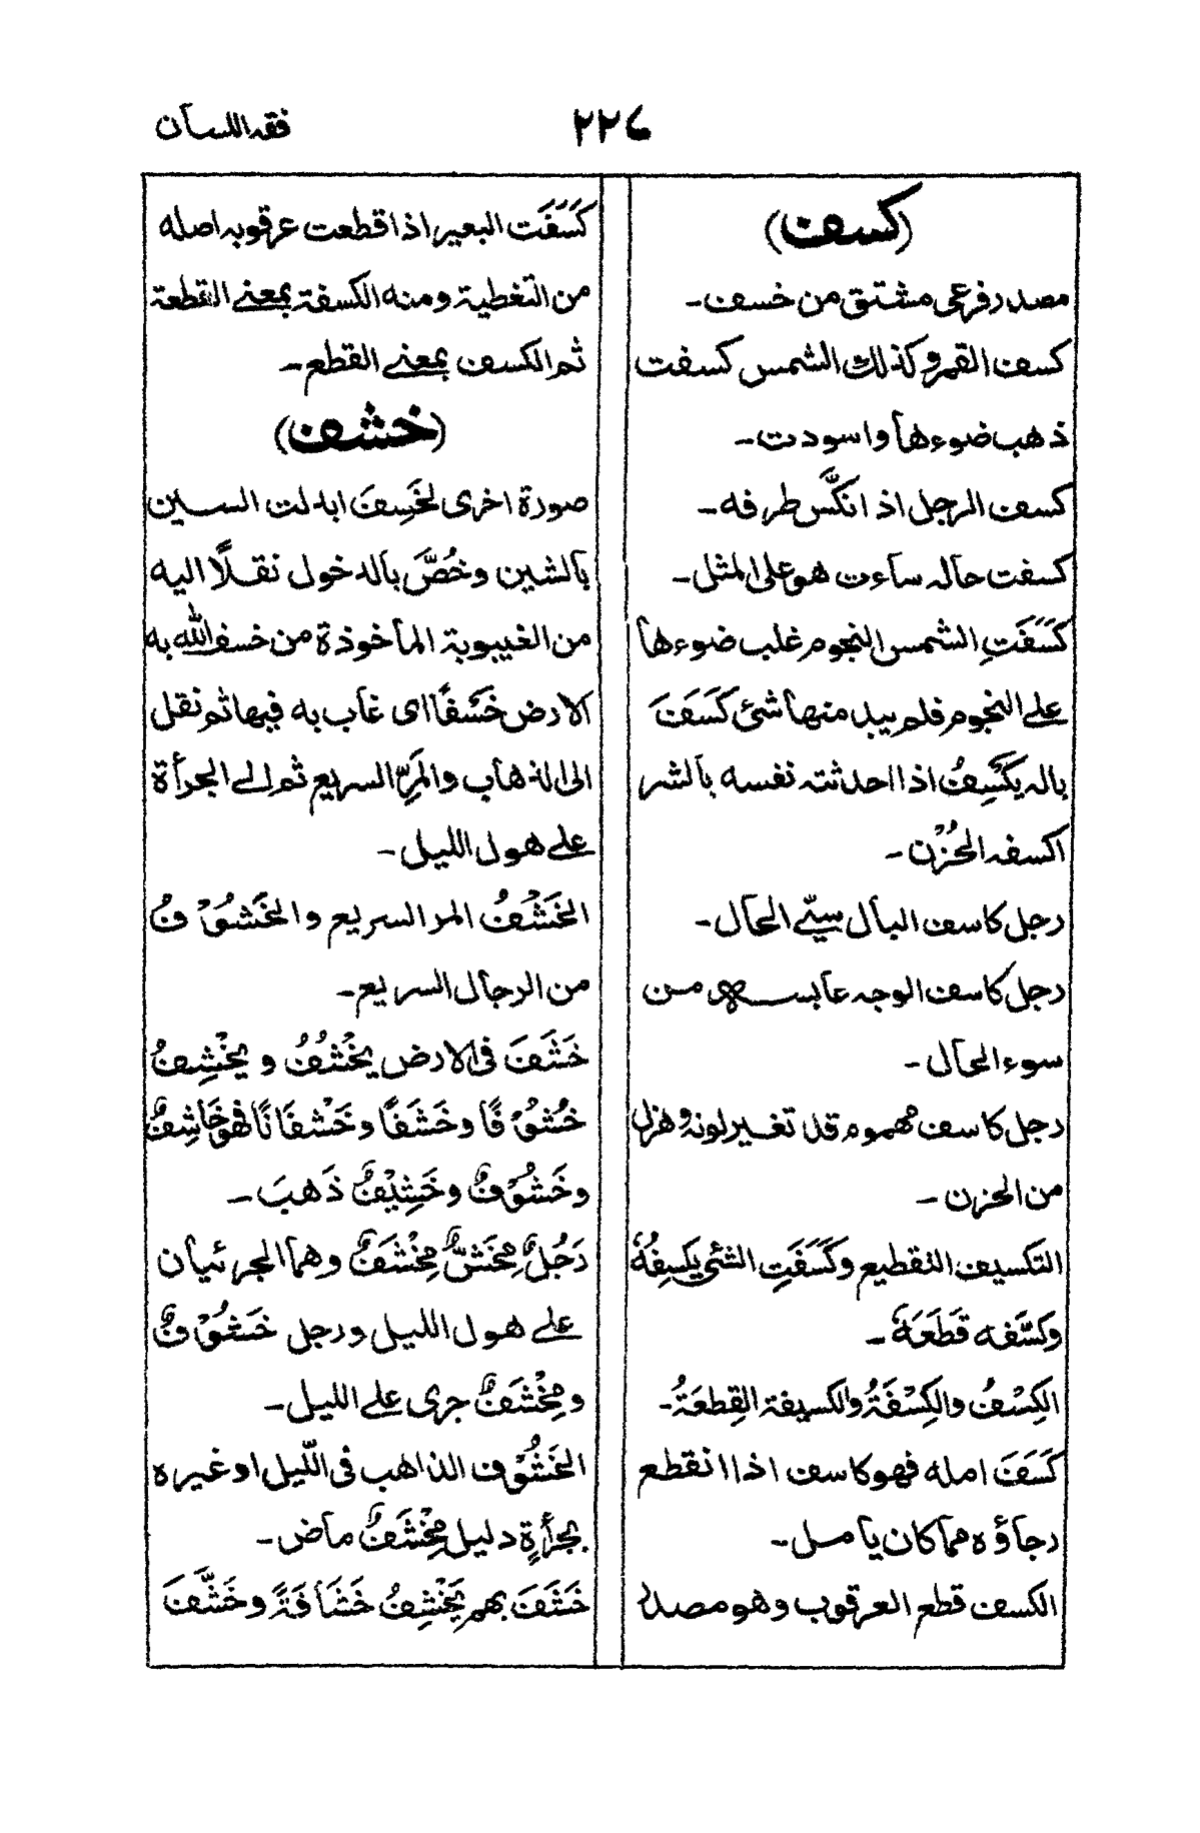 فقه اللسان
٢٢٦
(كسف)
مصدر فرعى مشتق من خسف۔
كسف القمر وكذلك الشمس كسفت
ذهب ضوءها واسودت۔
كسف الرجل اذا نكَّس طرفه۔
كسفت حاله ساءت هو على المثل۔
كَسَفَتِ الشمس النجوم غلب ضوءها
على النجوم فلم يبد منها شئ كَسَفَ
باله يَكْسِفُ اذا احدثته نفسه بالشر
اكسفه الحُزْن۔
رجل كاسف البال سيّئ الحال۔
رجل كاسف الوجه عابسه من
سوء الحال۔
رجل كاسف مهموم قد تغير لونه وهزل
من الحزن۔
التكسيف التقطيع وكَسَفَتِ الشئ يكسِفُهٗ
وكسَّفه قَطَعَهٗ۔
الكِسْفُ والكِسْفَةُ والكسيفة القِطعَةُ۔
كَسَفَ امله فهو كاسف اذا انقطع
رجاؤه مما كان يامل۔
الكسف قطع العرقوب وهو مصدر
كَسَفْت البعير اذا قطعت عرقوبه اصله
من التغطية ومنه الكسفة بمعنى القطعة
ثم الكسف بمعنى القطع۔
(خشف)
صورة اخرى لخَسِفَ ابدلت السين
بالشين وخُصَّ بالدخول نقلًا اليه
من الغيبوبة الماخوذة من خسف الله به
الارض خَسْفًا اى غاب به فيها ثم نقل
الى الذهاب والمَرِّ السريع ثم الى الجرأة
على هول الليل۔
الخَشْفُ المر السريع والخَشُوْفُ
من الرجال السريع۔
خَشَفَ فى الارض يَخْشُفُ و يَخْشِفُ
خُشُوْفًا وخَشَفًا وخَشْفَانًا فهو خَاشِفٌ
وخَشُوْفٌ وخَشِيْفٌ ذَهبَ۔
رَجُلٌ مِخَشٌّ مِخْشَفٌ وهما الجرئيان
على هول الليل ورجل خَشُوْفٌ
ومِخْشَفٌ جرى على الليل۔
الخَشُوْف الذاهب فى اللّيل او غيره
بجرأةٍ دليل مِخْشَفٌ ماض۔
خَشَفَ بهم يَخْشِفُ خَشَافَةً وخَشَّفَ